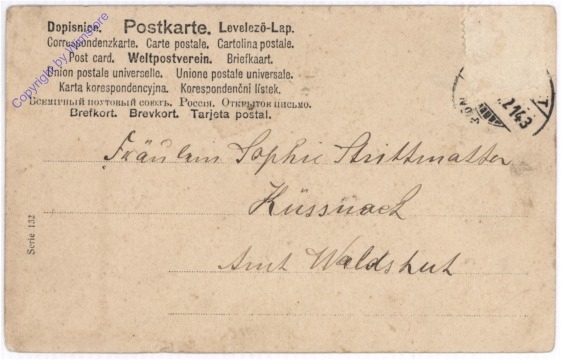 Dopisnice. Postkarte. Levelező-Lap.
Correspondenzkarte. Carte postale. Cartolina postale.
Post card. Weltpostverein. Briefkaart.
Union postale universelle. Unione postale universale.
Karta korespondencyjna. Korespondenční lístek.
Всемірный почтовый союзъ. Россія. Открытое письмо.
Brefkort. Brevkort. Tarjeta postal.
Copyright by Wimstore
2143
Fräulein Sophie Strittmatter
Küssnach
Amt Waldshut
Serie 132